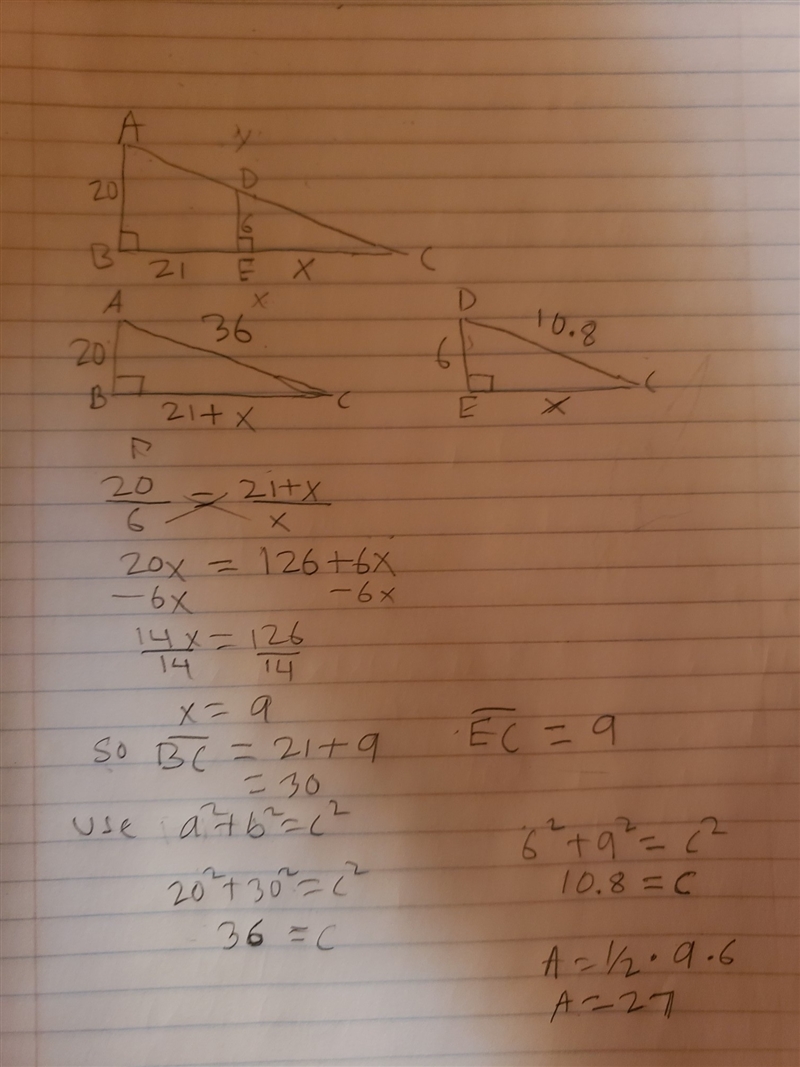 A
20 D
6
B 21 E x C
A 36
20
B 21+x C
D 10.8
6
E x C
20/6 = 21+x/x
20x = 126+6x
-6x -6x
14x/14 = 126/14
x = 9
so BC = 21+9
= 30
EC = 9
use a²+b²=c²
20²+30²=c²
36 = c
6²+9²=c²
10.8 = c
A = 1/2 · 9 · 6
A = 27